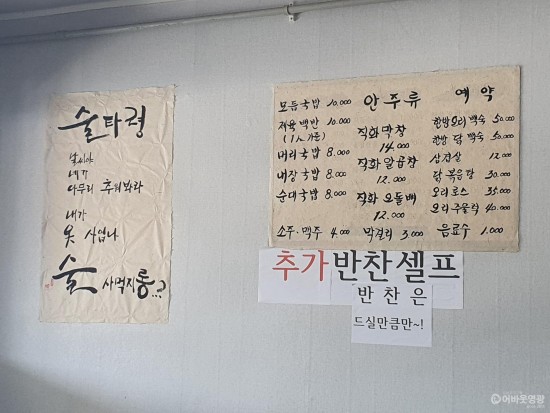 술타령
날씨야
네가
아무리 추워봐라
내가
옷 사입나
술 사먹지롱...?
모듬국밥 10.000
제육백반 10.000
(1人가능)
머리국밥 8.000
내장국밥 8.000
순대국밥 8.000
소주·맥주 4.000
안주류
직화막창
14.000
직화알곱창
12.000
직화오돌뼈
12.000
막걸리 3.000
예약
한방오리백숙 50.000
한방닭백숙 50.000
삼겹살 12.000
닭볶음탕 30.000
오리로스 35.000
오리주물럭 40.000
음료수 1.000
추가반찬셀프
반찬은
드실만큼만~!
어바웃영광